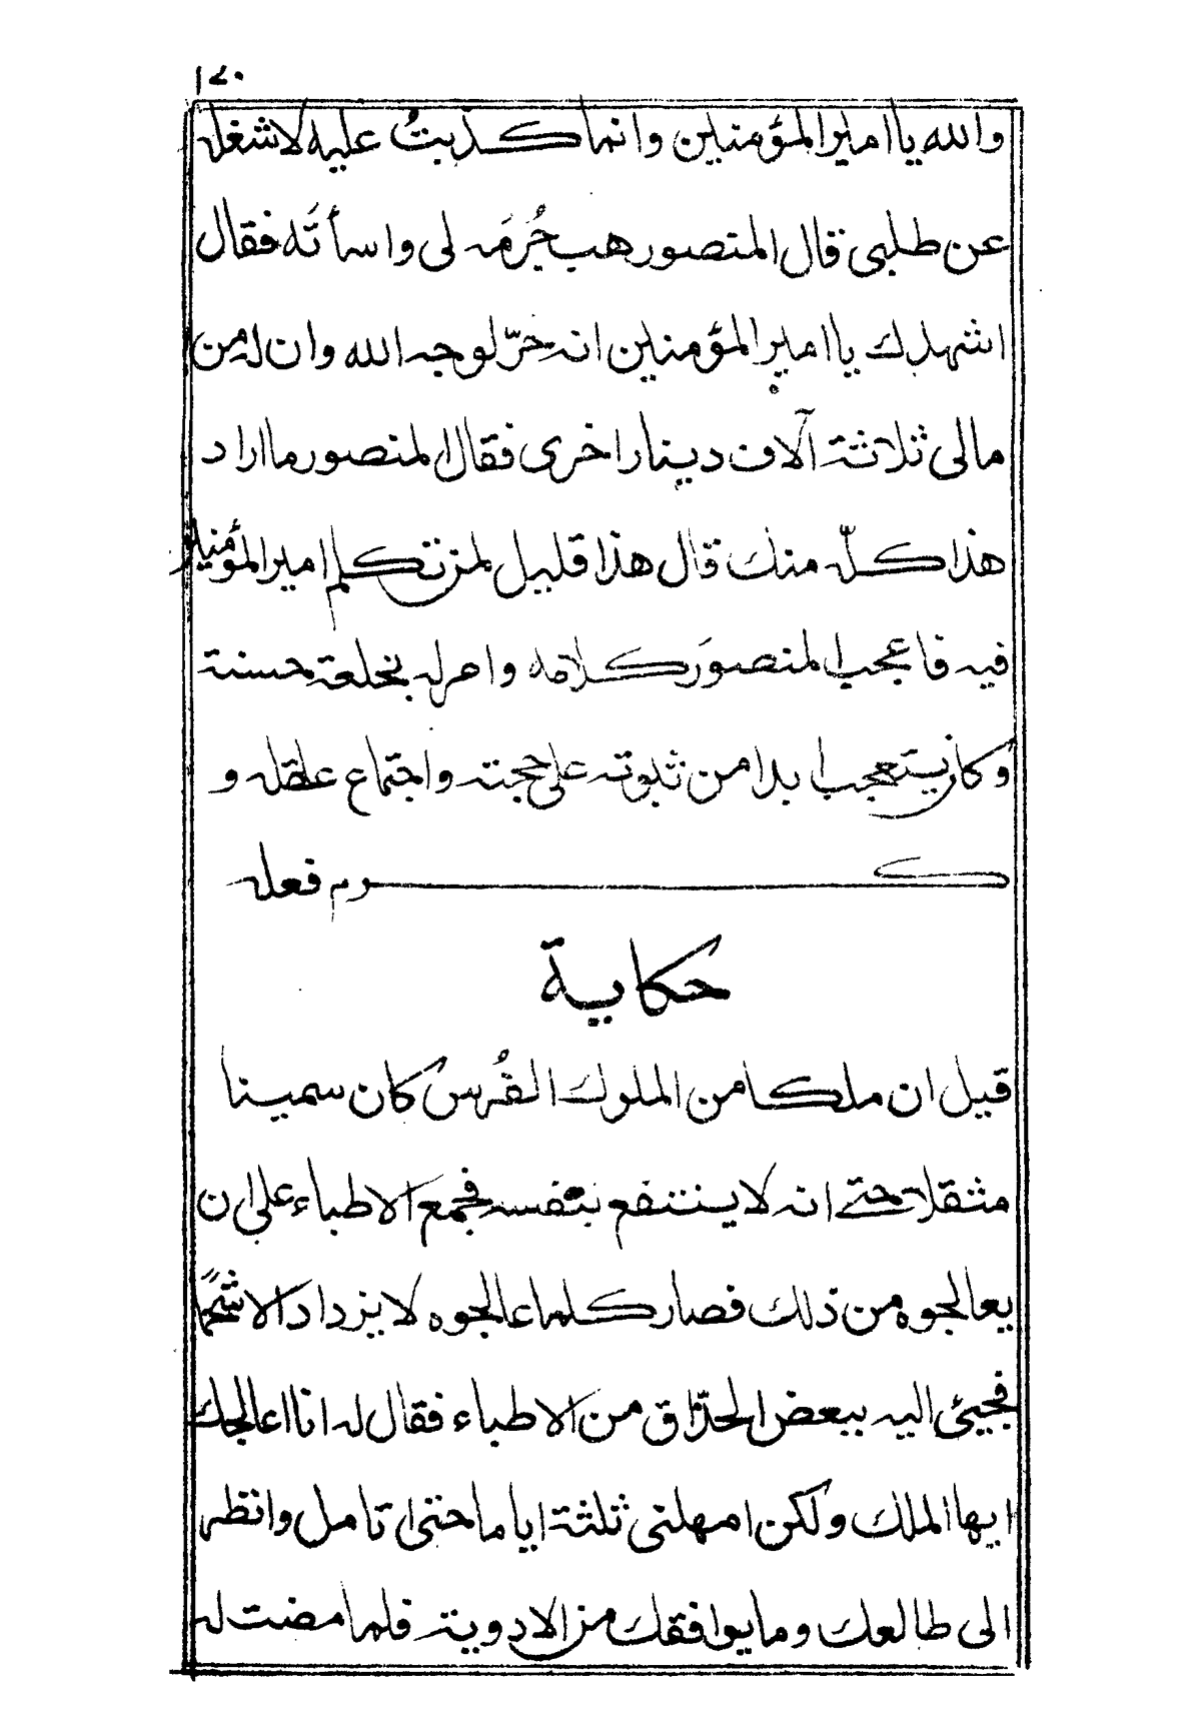 ١٤٠
والله يا امير المؤمنين وانما كذبتُ عليه لاشغله
عن طلبى قال المنصور هب جُرمَه لى واسأته فقال
اشهدك يا امير المؤمنين انه حرّ لوجه الله وان له من
مالى ثلاثة آلاف دينار اخرى فقال المنصور ما اراد
هذا كلّه منك قال هذا قليل لمن تكلم امير المؤمنين
فيه فاعجب المنصور كلامه وامر له بخلعة حسنة
وكان يتعجب ابدا من ثبوته على حجته واجتماع عقله و
كرم فعله
حكاية
قيل ان ملكا من الملوك الفُرس كان سمينا
مثقلا حتے انه لا ينتفع بنفسه فجمع الاطباء على ان
يعالجوه من ذلك فصار كلما عالجوه لا يزداد الا شحمًا
فجيئ اليه ببعض الحذّاق من الاطباء فقال له انا اعالجك
ايها الملك ولكن امهلنى ثلثة ايام حتى اتامل وانظر
الى طالعك وما يوافقك من الادوية فلما مضت له